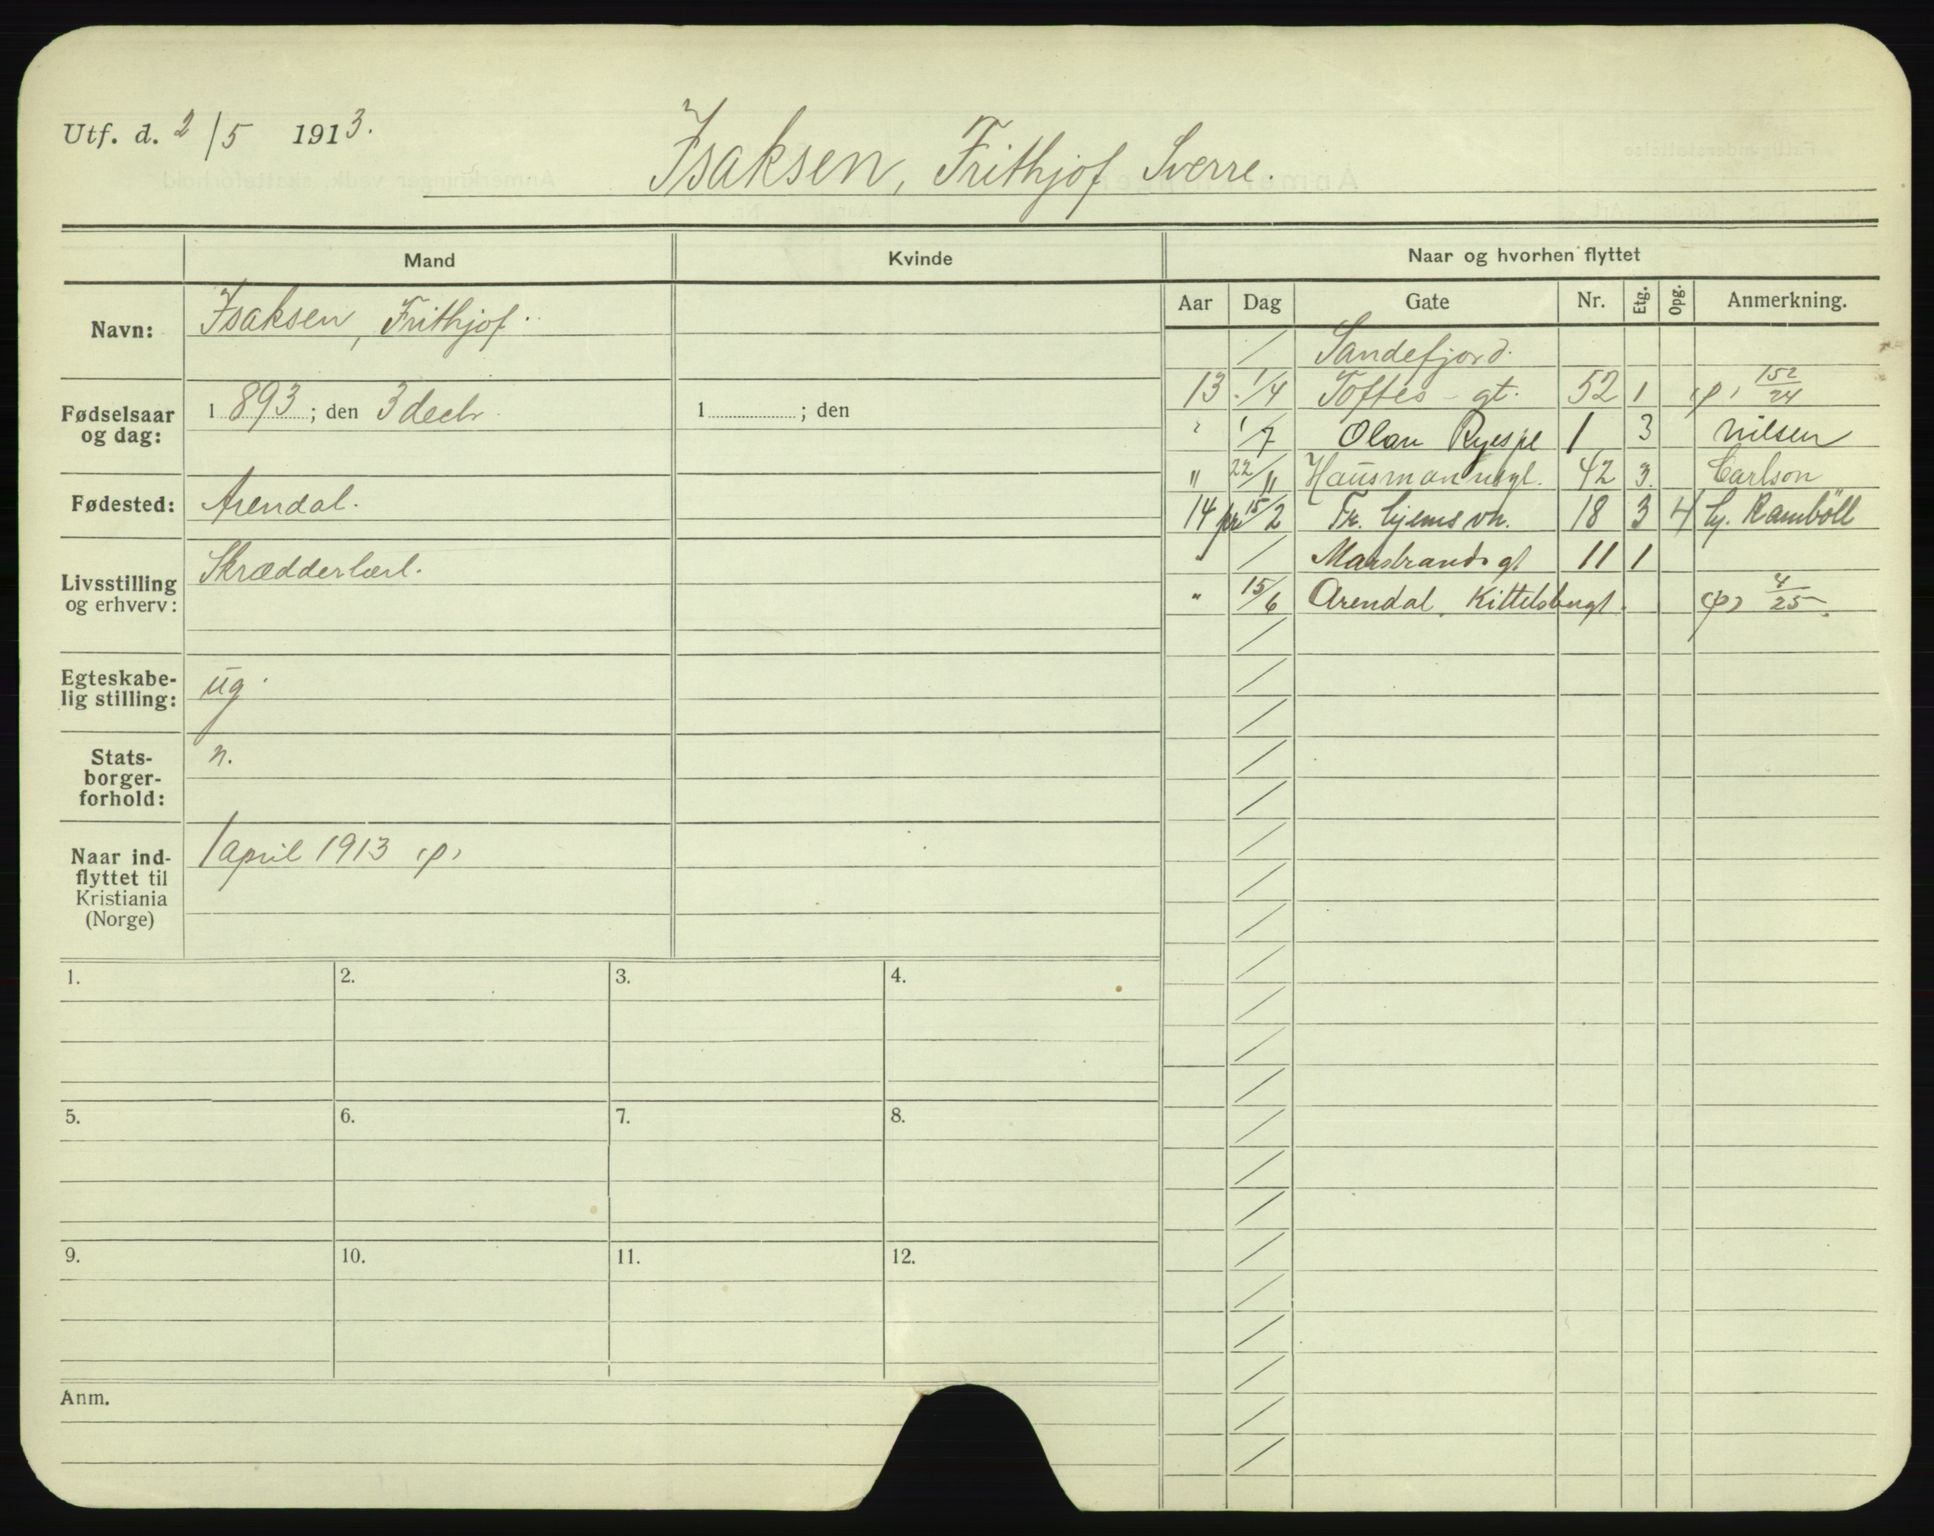 Utf. d. 2/5 1913.
Isaksen, Frithjof Sverre.
Mand
Kvinde
Naar og hvorhen flyttet
Aar Dag Gate Nr. Etg. Opg. Anmerkning.
Navn:
Isaksen, Frithjof
Fødselsaar
og dag:
1893; den 3 decbr
1 ; den
Fødested:
Arendal.
Livsstilling
og erhverv:
Skrædderlærl.
Egteskabe-
lig stilling:
ug.
Stats-
borger-
forhold:
n.
Naar ind-
flyttet til
Kristiania
(Norge)
1 april 1913 (p)
/ Sandefjord.
13 1/4 Toftes - gt. 52 1 (p) 152/24
" 1/7 Olau Ryespl 1 3 Nilsen
" 22/" Hausmannsgt. 42 3. Carlson
14 pr 15/2 Fr. hjemsvn. 18 3 4 hj. Ramböll
" / Marstrandsgt 11 1
" 15/6 Arendal. Kittelsbugt. (p) 4/25.
1.
2.
3.
4.
5.
6.
7.
8.
9.
10.
11.
12.
Anm.